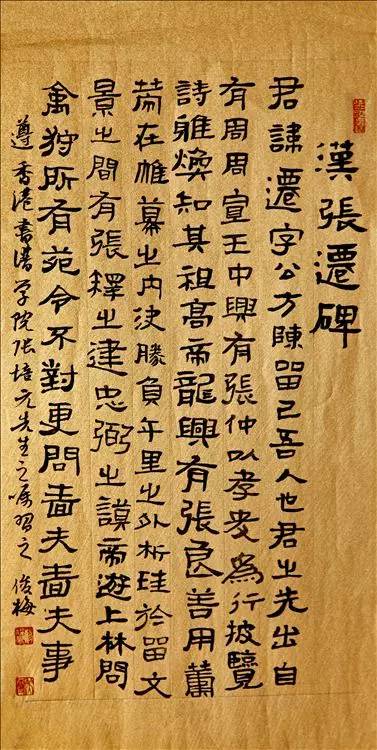 漢張遷碑
君諱遷字公方陳留己吾人也君之先出自
有周周宣王中興有張仲以孝友為行披覽
詩雅煥知其祖高帝龍興有張良善用籌
策在帷幕之内決勝負千里之外析珪於留文
景之間有張釋之建忠弼之謨帝遊上林問
禽狩所有苑令不對更問嗇夫嗇夫事
遵香港書譜学院张培元先生之嘱習之 俊梅